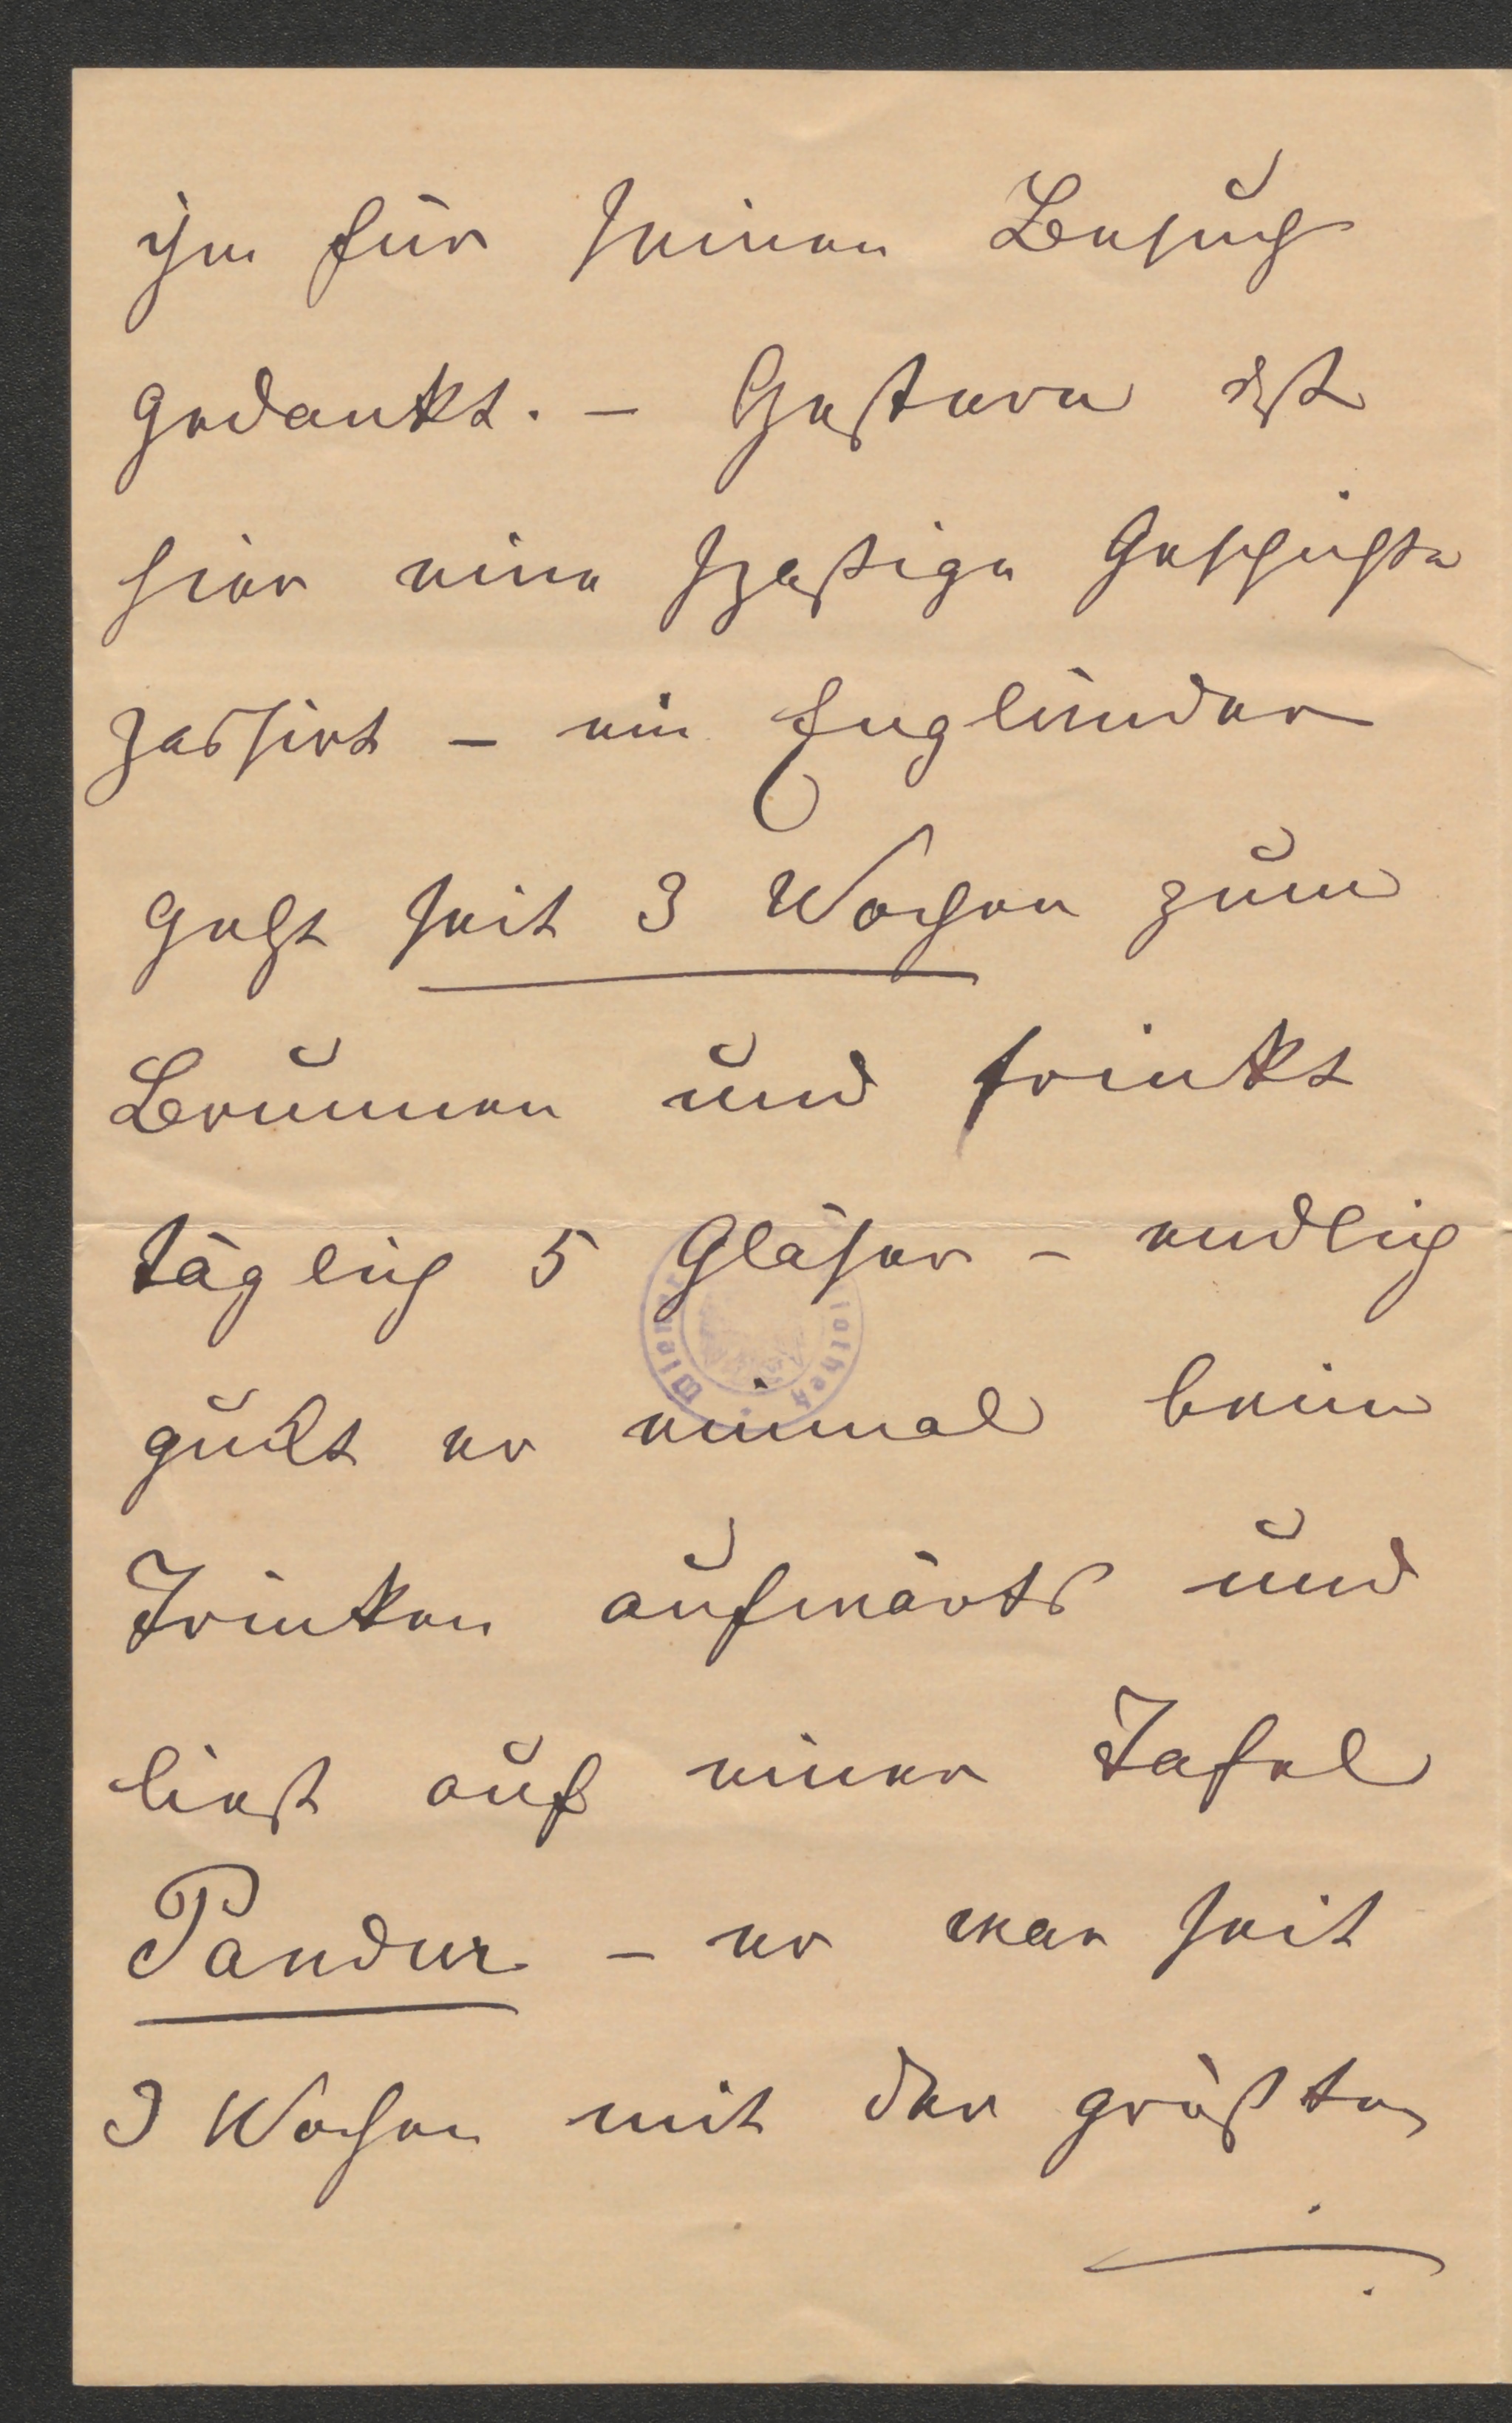 ihm für seinen Besuch
gedankt. – Gestern ist
hier eine spaßige Geschichte
passirt – ein Engländer
geht seit 3 Wochen zum
Brunnen und trinkt
täglich 5 Gläser – endlich
guckt er einmal beim
Trinken aufwärts und
liest auf einer Tafel
Pandur – er war seit
3 Wochen mit der größten